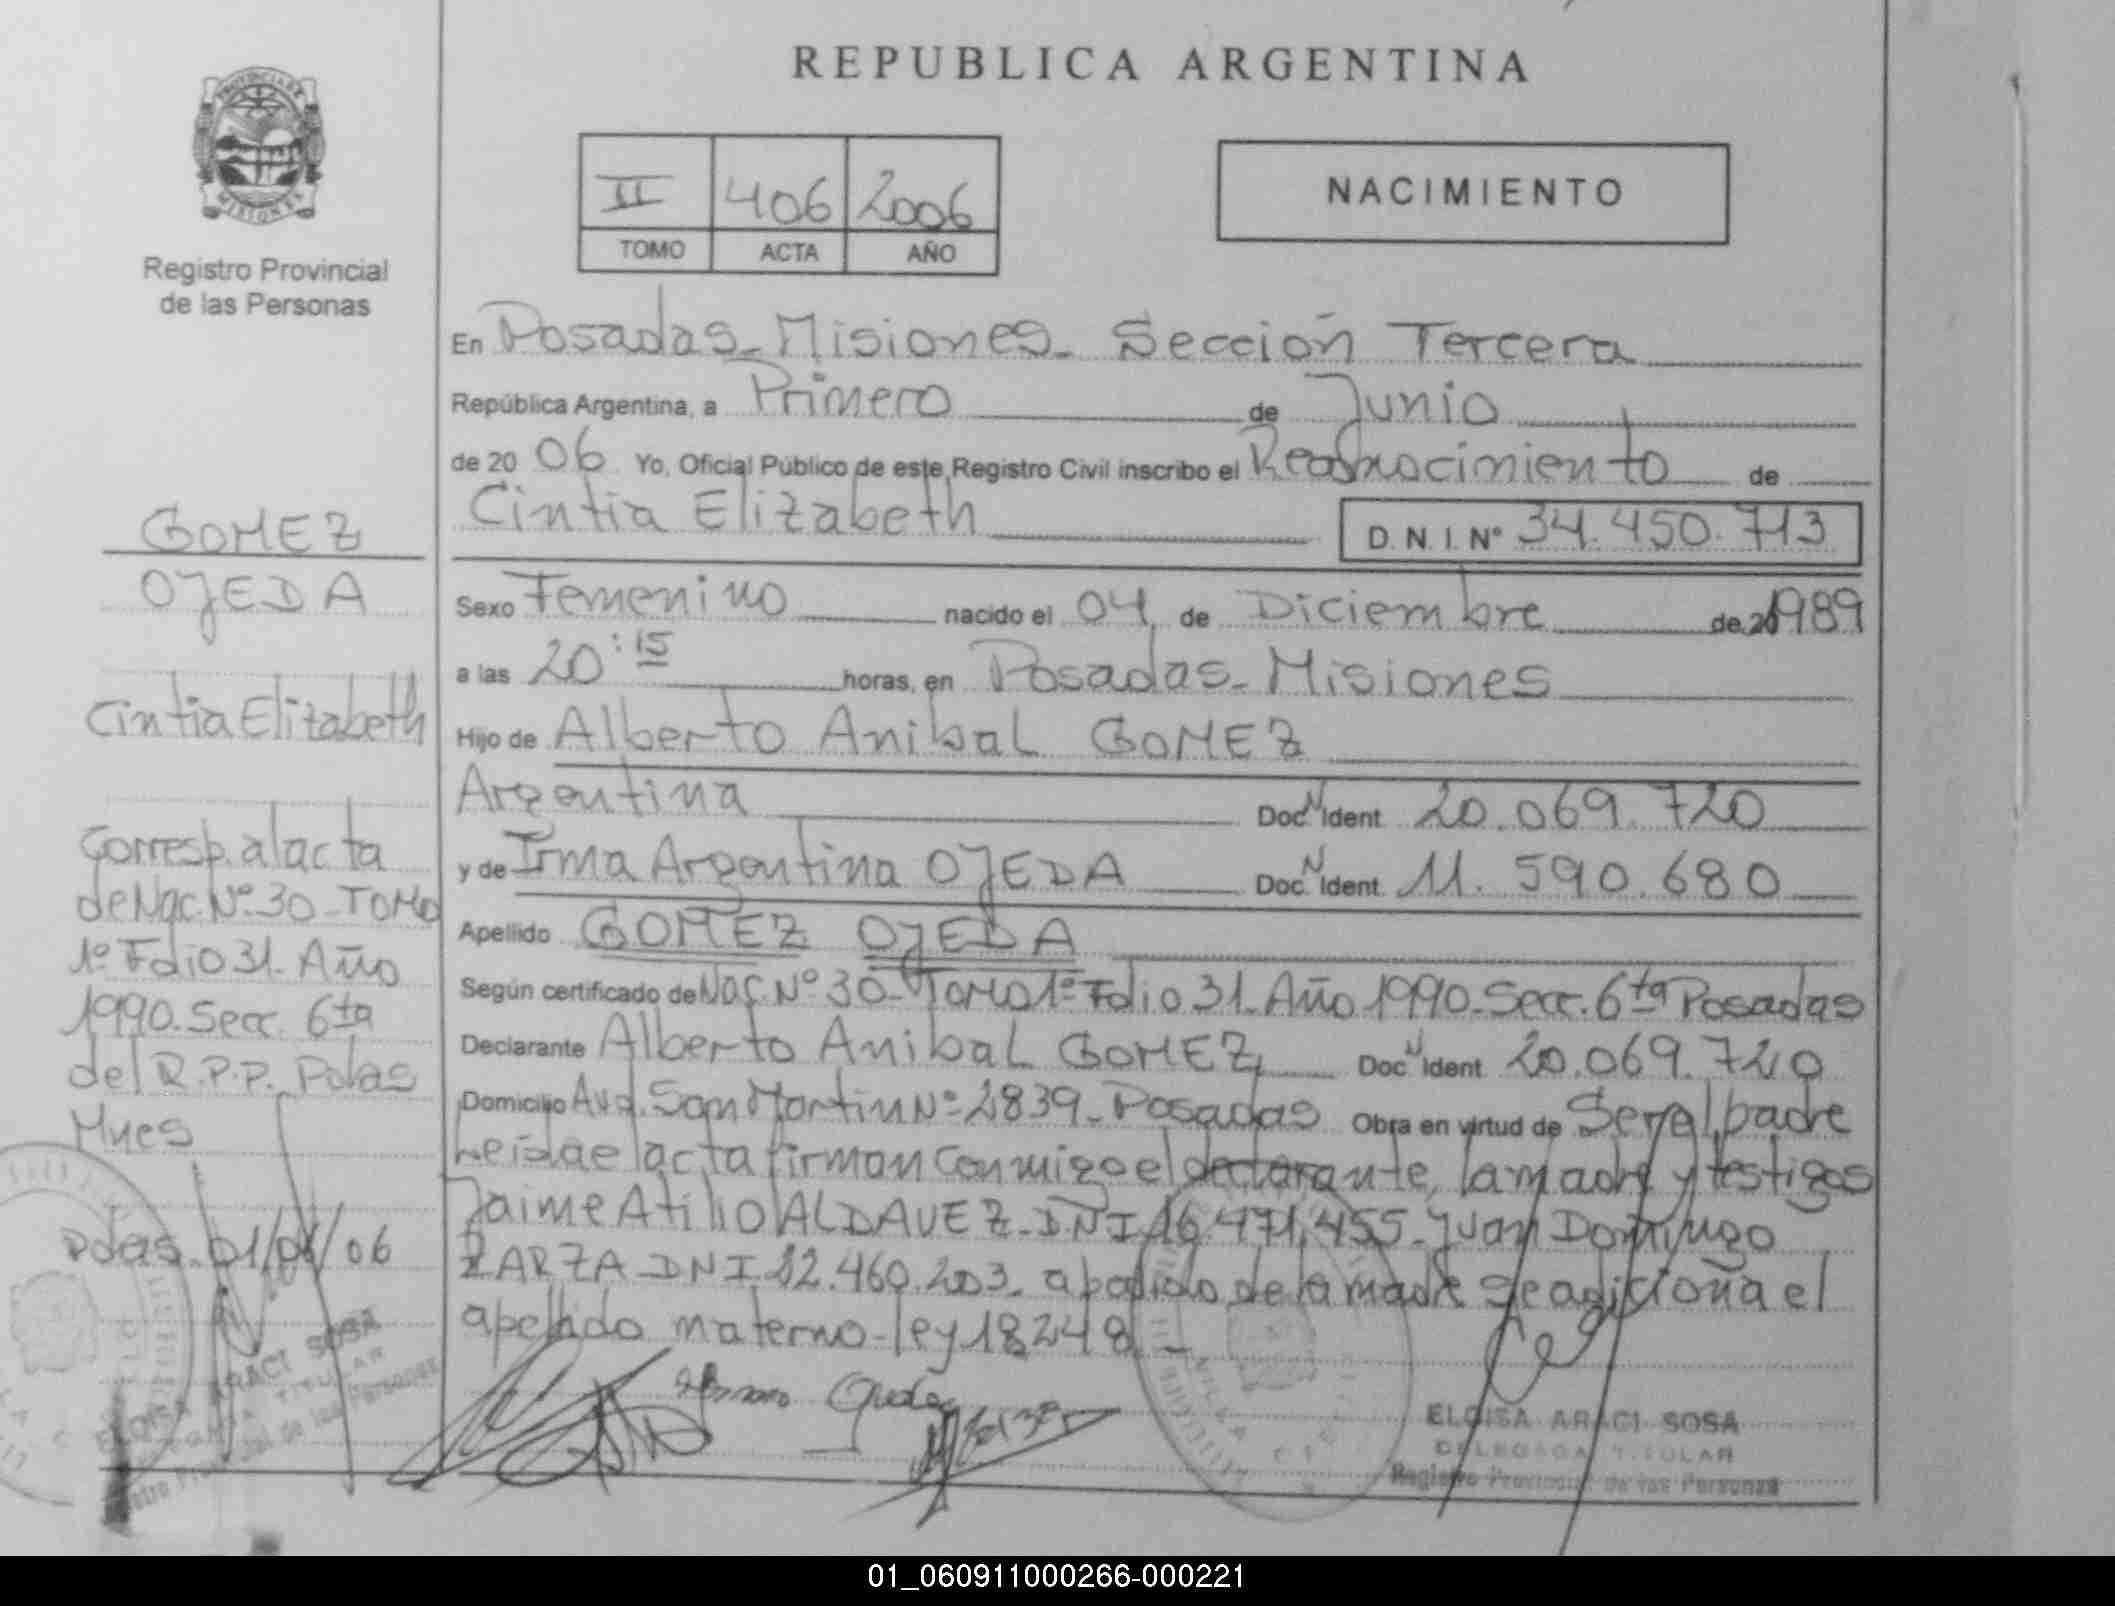 REPUBLICA ARGENTINA
PROVINCIA DE
MISIONES
Registro Provincial
de las Personas
II 406 2006
TOMO ACTA AÑO
NACIMIENTO
En Posadas-Misiones-Sección Tercera
República Argentina, a Primero de Junio
de 2006 Yo, Oficial Público de este Registro Civil inscribo el Reconocimiento de
Cintia Elizabeth D.N.I. Nº 34.450.713
Sexo Femenino nacido el 04 de Diciembre de 1989
a las 20:15 horas, en Posadas-Misiones
Hijo de Alberto Anibal GOMEZ
Argentina Doc. N Ident. 20.069.720
y de Irma Argentina OJEDA Doc. N Ident. 11.590.680
Apellido GOMEZ OJEDA
Según certificado de Nac. Nº 30-TOMO 1º Folio 31-Año 1990-Secc. 6ta Posadas
Declarante Alberto Anibal GOMEZ Doc. N Ident. 20.069.720
Domicilio Avd. San Martin Nº 2839-Posadas Obra en virtud de Ser el padre
Leida el acta firman conmigo el declarante, la madre y testigos
Jaime Atilio ALDAVEZ-DNI 16.471.455-Juan Domingo
ZARZA DNI 12.460.203- a pedido de la madre se adiciona el
apellido materno-ley 18248.-
ELOISA ARACI SOSA
DELEGADA TITULAR
Registro Provincial de las Personas
GOMEZ
OJEDA
Cintia Elizabeth
Corresp. al acta
de Nac. Nº 30-TOMO
1º Folio 31-Año
1990-Secc. 6ta
del R.P.P. Pdas
Mnes
Pdas. 01/06/06
ELOISA ARACI SOSA
DELEGADA TITULAR
Registro Provincial de las Personas
01_060911000266-000221